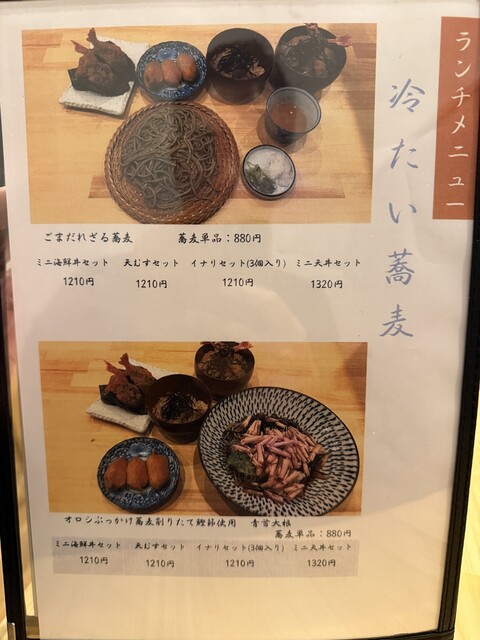 ランチメニュー
冷たい蕎麦
ごまだれざる蕎麦 蕎麦単品：880円
ミニ海鮮丼セット 天むすセット イナリセット(3個入り) ミニ天丼セット
1210円 1210円 1210円 1320円
オロシぶっかけ蕎麦削りたて鰹節使用 青首大根
蕎麦単品：880円
ミニ海鮮丼セット 天むすセット イナリセット(3個入り) ミニ天丼セット
1210円 1210円 1210円 1320円